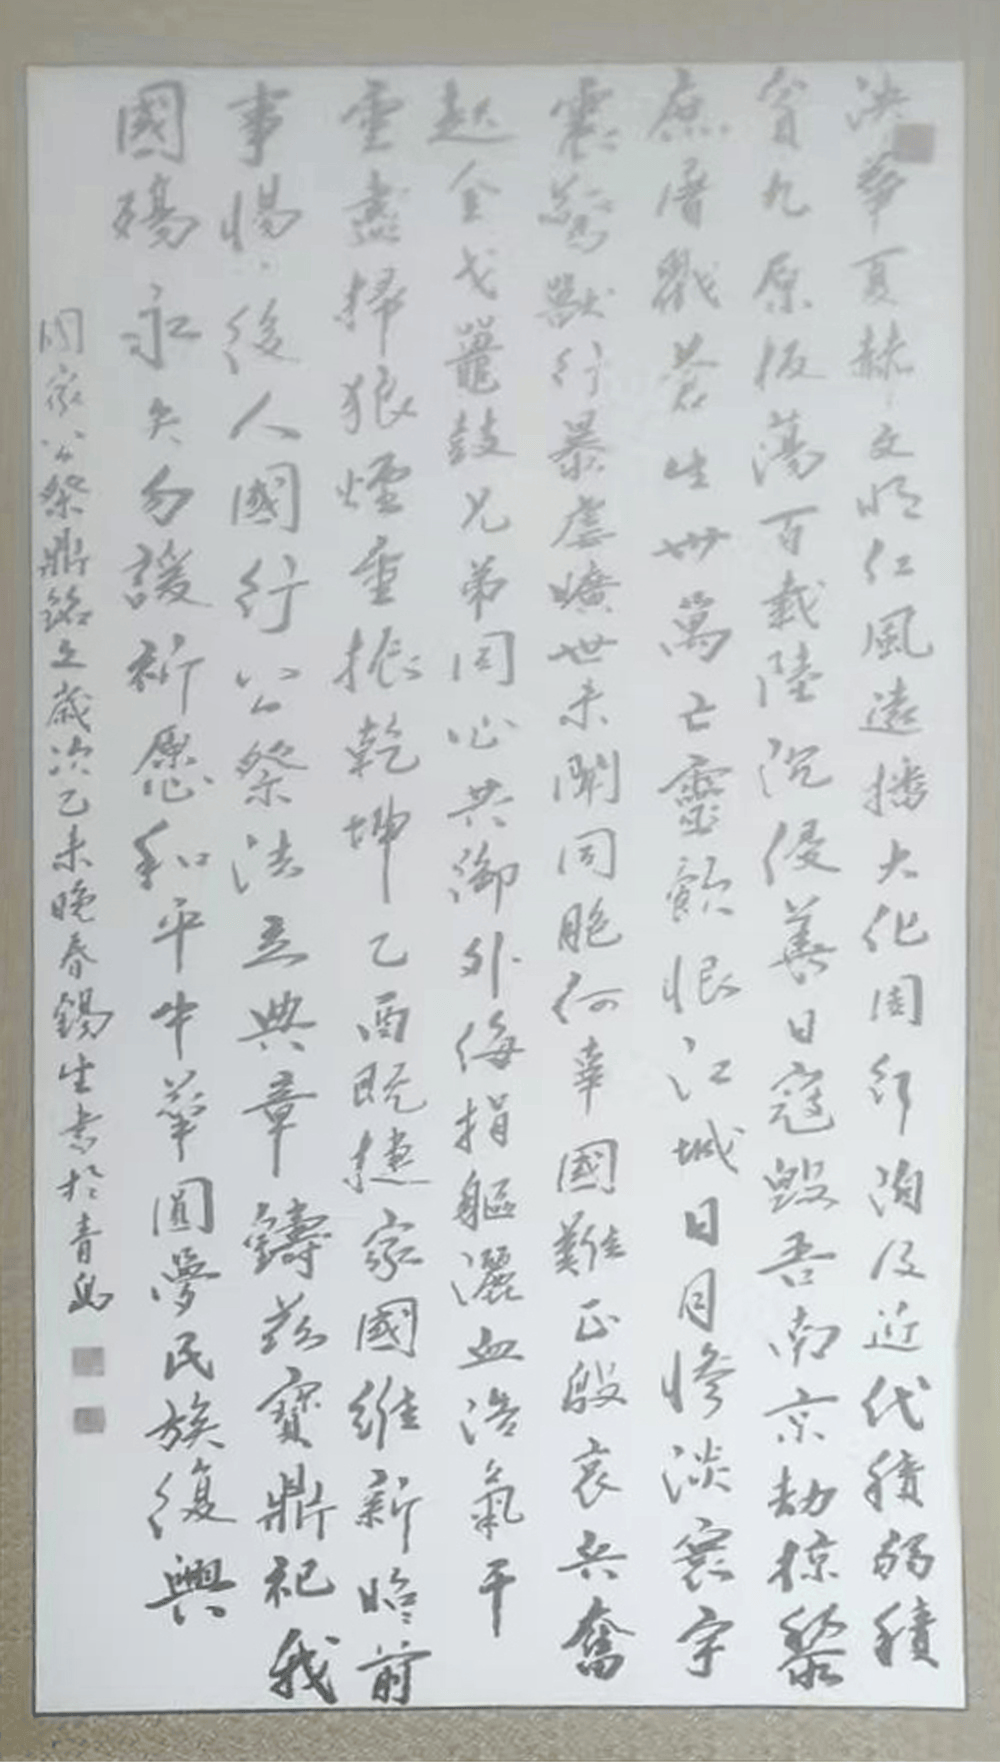 泱々華夏赫々文明仁風遠播大化周行洎及近代積弱積
貧九原板蕩百載陸沉侵華日寇毀吾南京劫掠黎
庶屠戮蒼生卅萬亡靈飲恨江城日月慘淡寰宇
震驚獸行暴虐曠世未聞同胞何辜國難正殷哀兵奮
起金戈鼉鼓兄弟同心共御外侮捐軀灑血浩氣干
雲盡掃狼煙重振乾坤乙酉既捷家國維新昭々前
事惕々後人國行公祭法立典章鑄茲寶鼎祀我
國殤永矢勿諼祈愿和平中華圓夢民族復興
國家公祭鼎銘歲次乙未晚春錫生書於青島